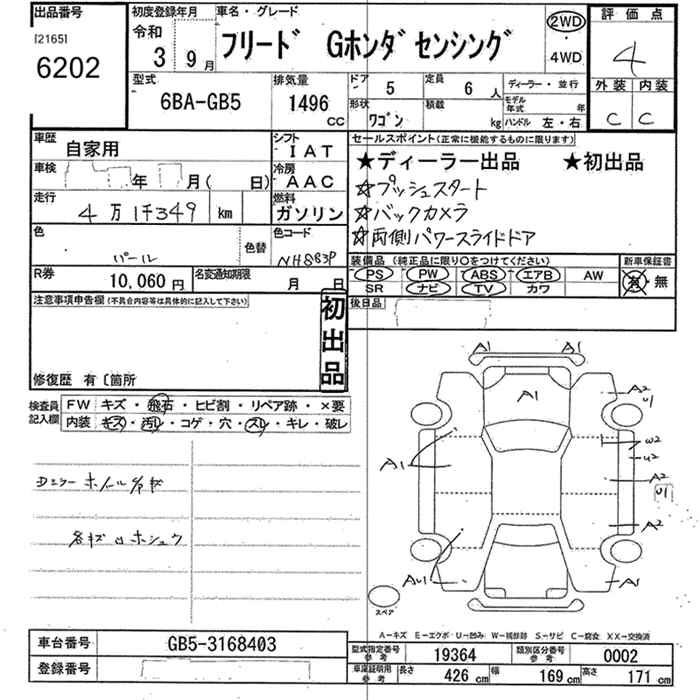 出品番号
[2165]
6202
初度登録年月
令和
3 9月
車名・グレード
フリード Gホンダセンシング
2WD
・
4WD
評価点
4
外装 内装
C C
型式
6BA-GB5
排気量
1496
cc
ドア
5
定員
6人
形状
ワゴン
積載
kg
ディーラー・並行
モデル年式 年
ハンドル 左・右
車歴
自家用
シフト
IAT
車検
年 月( 日)
冷房
AAC
走行
4万1千349 km
燃料
ガソリン
色
パール
色替
色コード
NH883P
R券
10,060円
名変通知期限
月 日
セールスポイント(正常に機能するものに限ります)
★ディーラー出品 ★初出品
☆プッシュスタート
☆バックカメラ
☆両側パワースライドドア
装備品(純正品に限り○をつけてください)
PS PW ABS エアB AW
SR ナビ TV カワ
新車保証書
有・無
後日品
注意事項申告欄(不具合内容等は具体的に記入して下さい)
初出品
修復歴 有〔箇所
検査員記入欄
FW キズ・飛石・ヒビ割・リペア跡・×要
内装 キズ・汚レ・コゲ・穴・スレ・キレ・破レ
Dミラー ホイール
ホシュウ
A1 A1
A1
A2
U1
A1
W2
U2
A2
U1
A2
AU1
A1
スペア
A-キズ E-エクボ U-凹み W-補修跡 S-サビ C-腐食 XX-交換済
車台番号
GB5-3168403
登録番号
型式指定番号参考
19364
類別区分番号参考
0002
車庫証明用参考
長さ 426 cm
幅 169 cm
高さ 171 cm